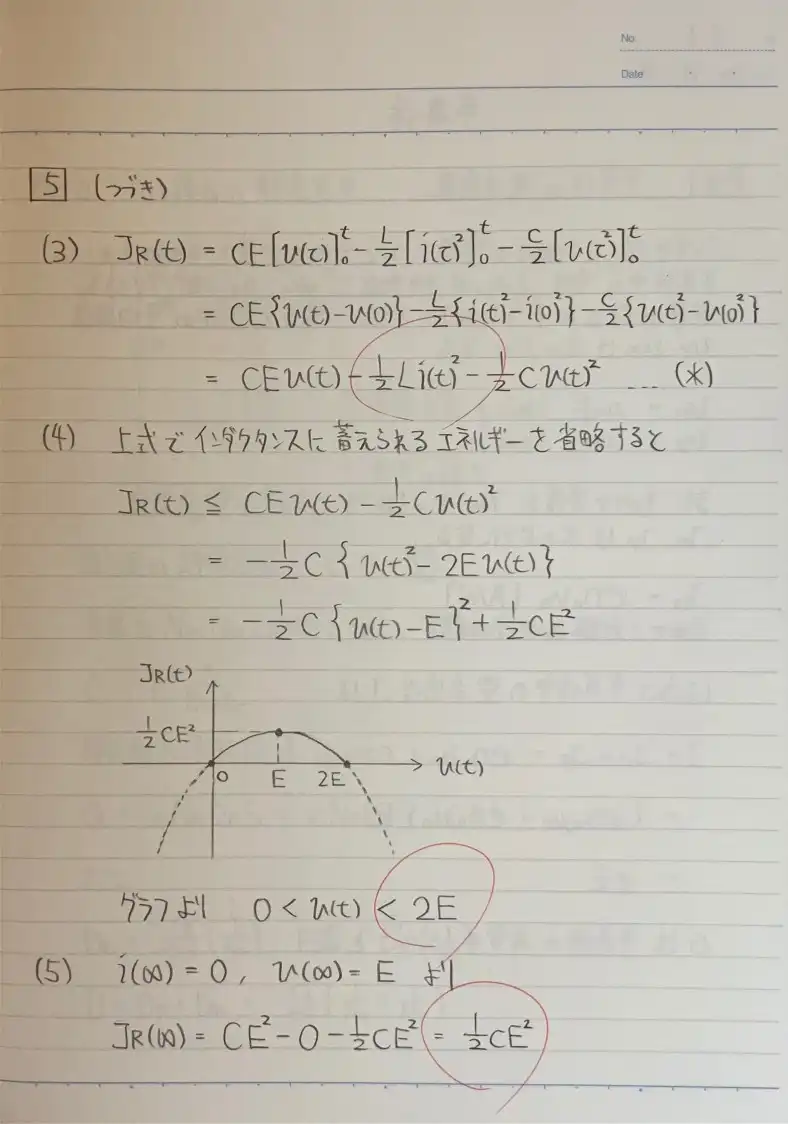 No.
Date
5 (つづき)
(3) JR(t) = CE[v(τ)]₀ᵗ - L/2[i(τ)²]₀ᵗ - C/2[v(τ)²]₀ᵗ
= CE{v(t)-v(0)} - L/2{i(t)²-i(0)²} - C/2{v(t)²-v(0)²}
= CEv(t) - 1/2 Li(t)² - 1/2 Cv(t)² … (*)
(4) 上式でインダクタンスに蓄えられるエネルギーを省略すると
JR(t) ≦ CEv(t) - 1/2 Cv(t)²
= -1/2 C{v(t)² - 2Ev(t)}
= -1/2 C{v(t)-E}² + 1/2 CE²
JR(t)
1/2 CE²
0 E 2E v(t)
グラフより 0 < v(t) < 2E
(5) i(∞) = 0, v(∞) = E より
JR(∞) = CE² - 0 - 1/2 CE² = 1/2 CE²